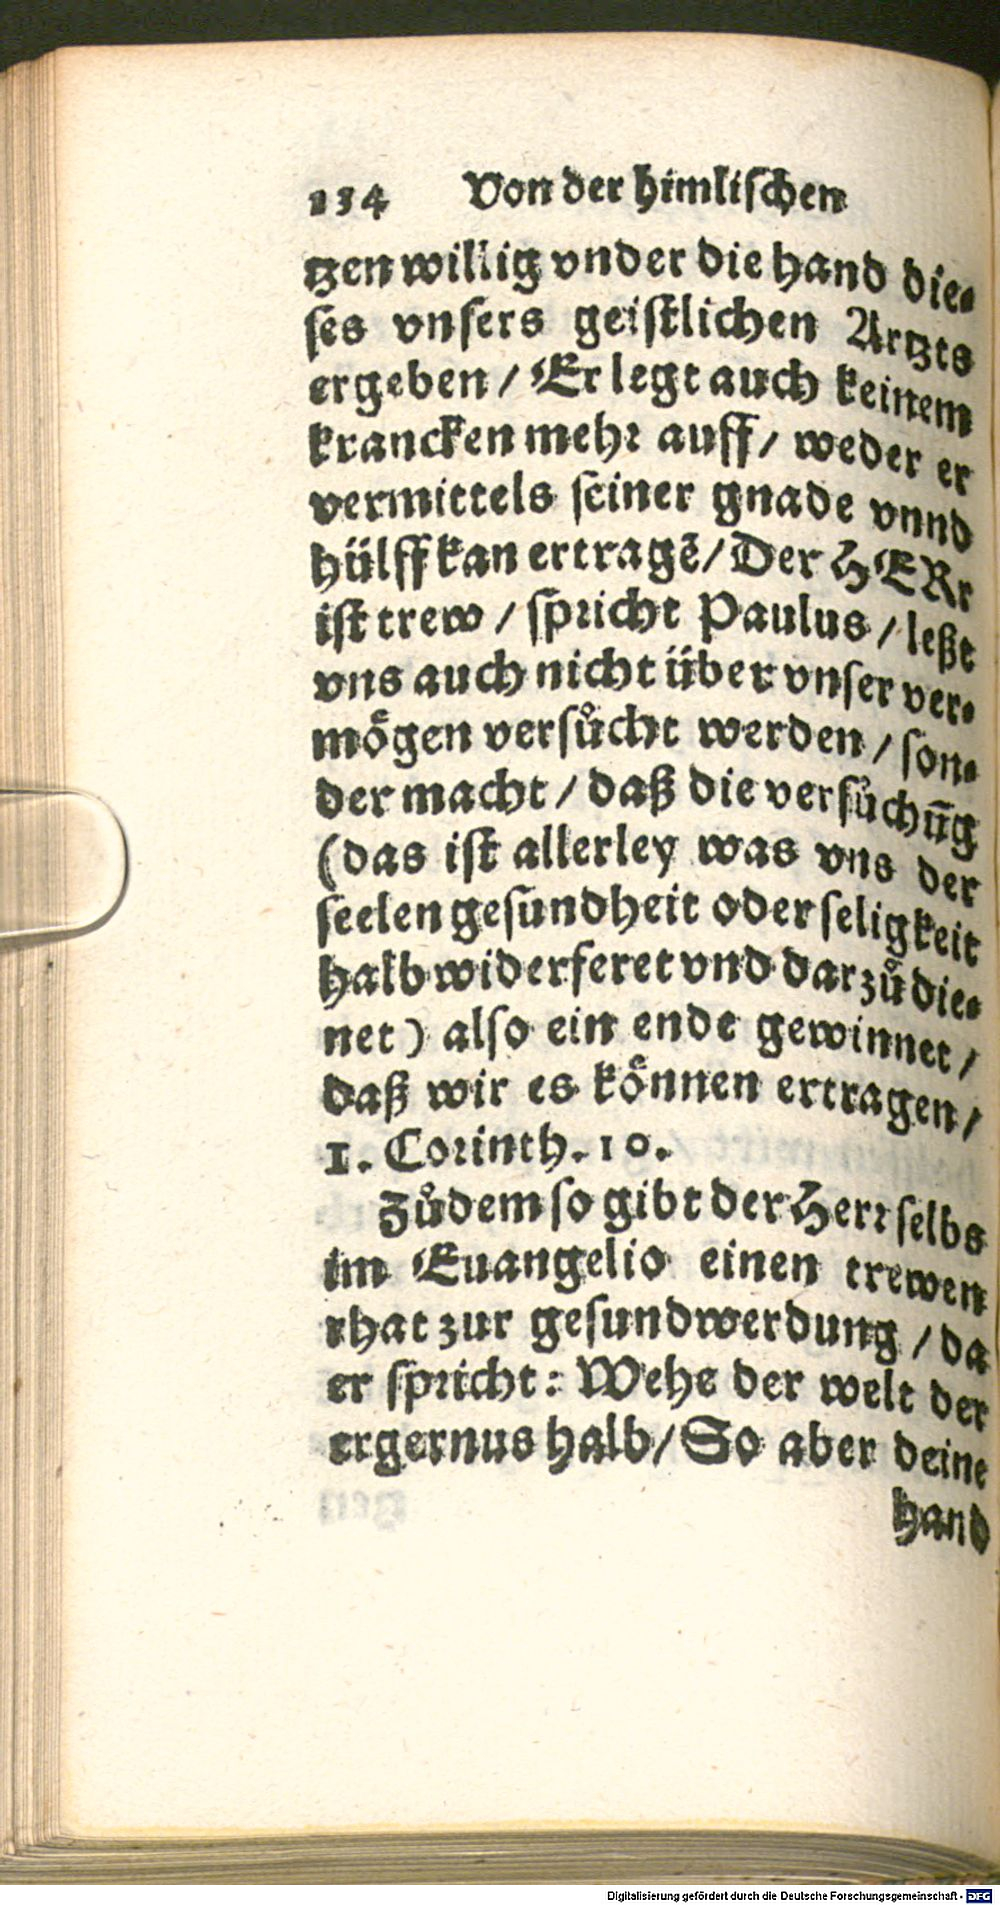 134 Von der himlischen
tzen willig vnder die hand die⸗
ses vnsers geistlichen Artzts
ergeben / Er legt auch keinem
krancken mehr auff / weder er
vermittels seiner gnade vnnd
hülff kan ertragē / Der HERr
ist trew / spricht Paulus / leßt
vns auch nicht über vnser ver⸗
moͤgen versuͦcht werden / son⸗
der macht / daß die versuͦchūg
(das ist allerley was vns der
seelen gesundheit oder seligkeit
halb widerferet vnd darzuͦ die⸗
net) also ein ende gewinnet /
daß wir es koͤnnen ertragen /
1. Corinth. 10.
Zuͦdem so gibt der Herr selbs
im Euangelio einen trewen
rhat zur gesundwerdung / da
er spricht: Wehe der welt der
ergernus halb / So aber deine
hand
Digitalisierung gefördert durch die Deutsche Forschungsgemeinschaft - DFG